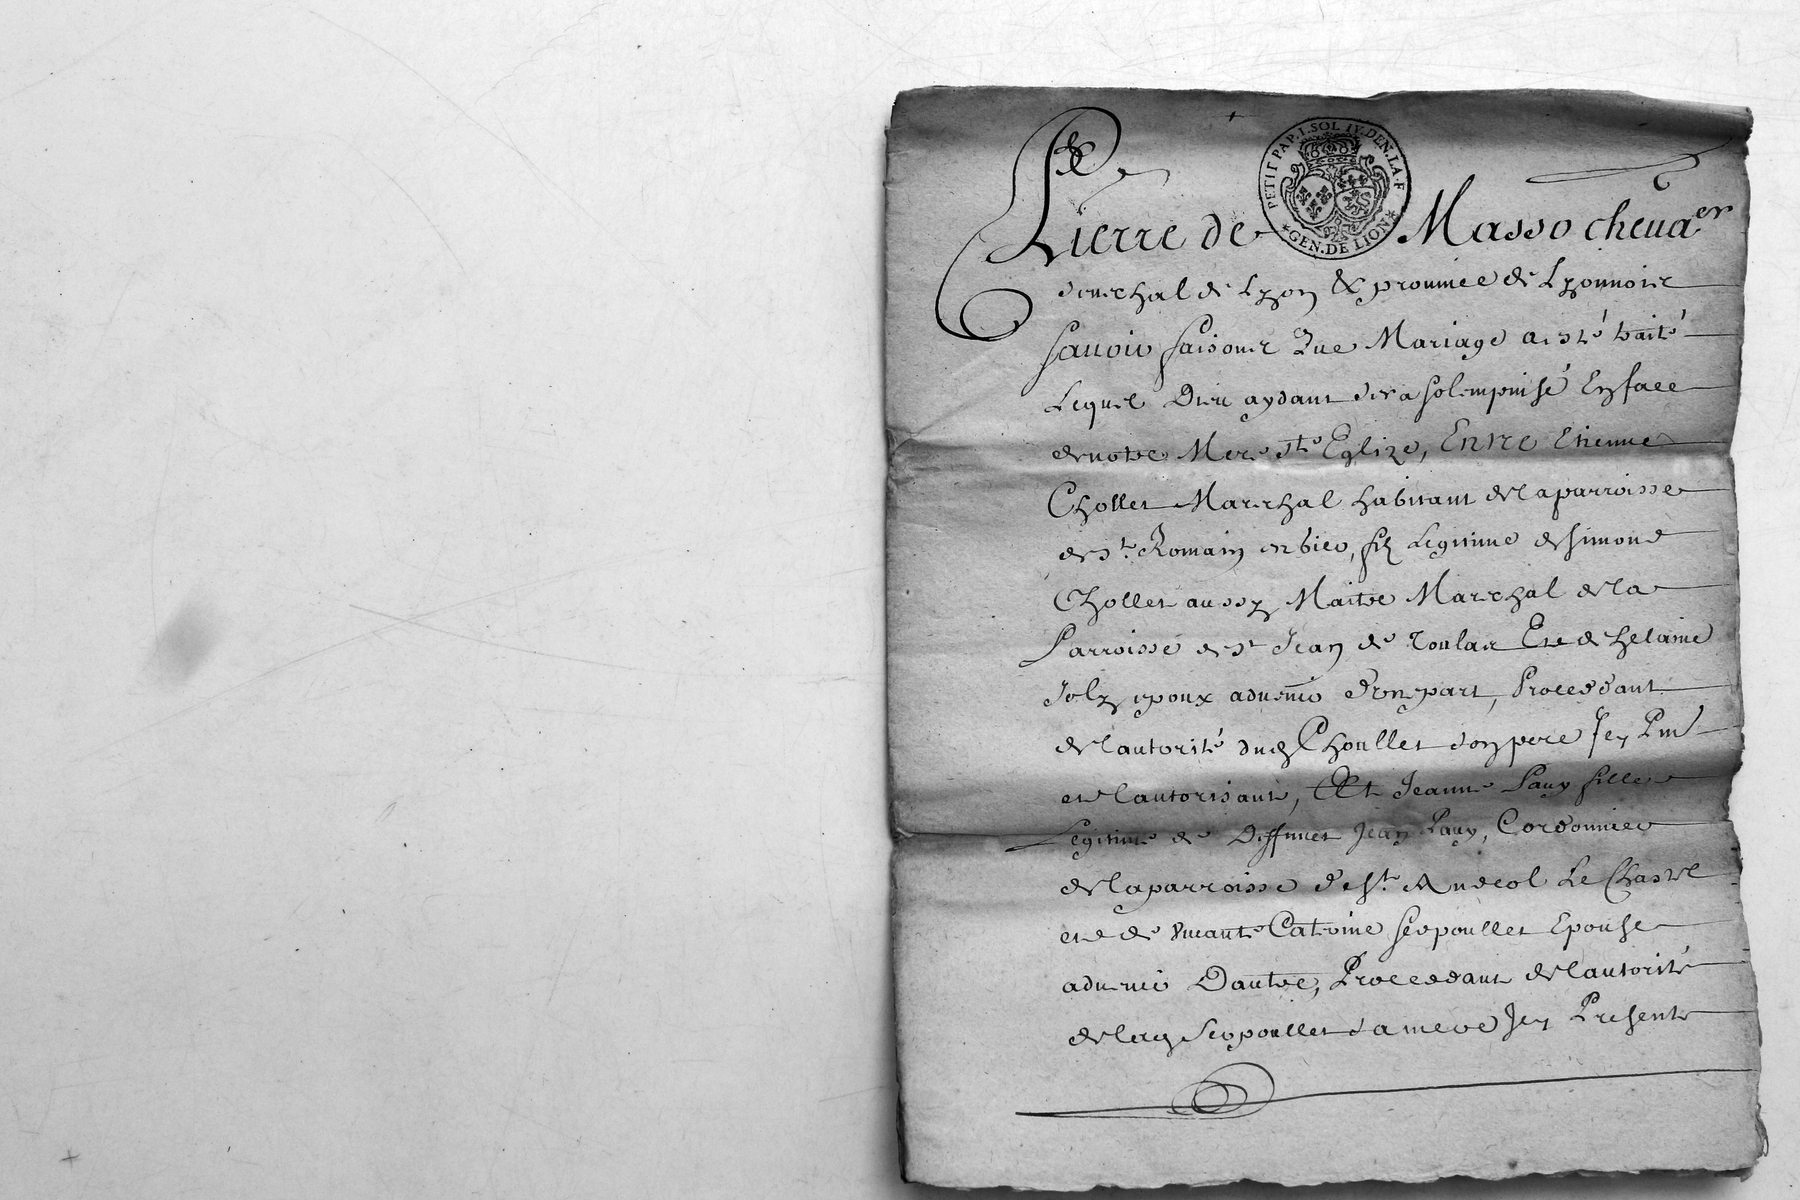 PETIT PAP. I. SOL IV. DEN. LA. F
GEN. DE LION
Pierre de Masso cheua.er
senechal de Lyon & prouince de Lyonnois
sauoir faisons Que Mariage a esté traité
Lequel Dieu aydant sera solempnisé En face
de notre Mere Ste Eglize, Entre Etienne
Chollet Marechal habitant de la parroisse
de St. Romain en Gier, filz Legitime de Simond
Chollet aussy Maitre Marechal de la
Parroisse de St Jean de Toulas Et de helaine
Joly epoux aduenir d'une part, Procedant
de l'autorité dud Choullet son pere Icy Pnt
et l'autorisant, Et Jeanne Pauy fille
Legitime de Deffunct Jean Pauy, Cordonnier
de la parroisse de St. Andeol Le Chastel
et de viuante Caterine Serpoullet Epouse
aduenir Dautre, Procedant de l'autorité
de lad Serpoullet sa mere Icy Presente